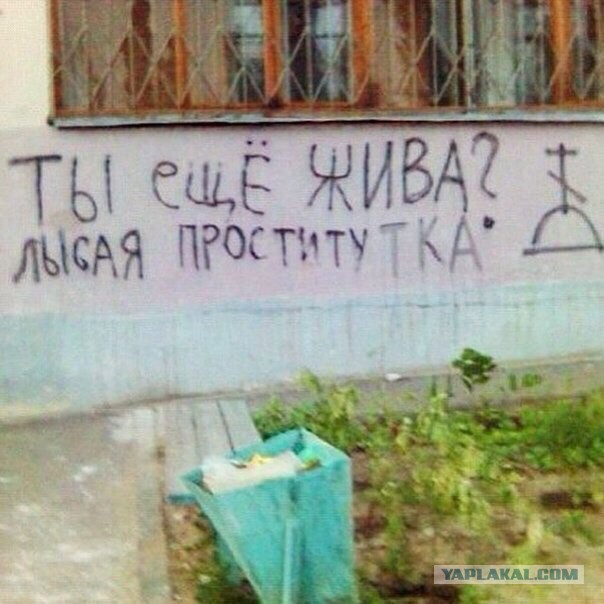 ТЫ ещЁ ЖИВА?
ЛЫСАЯ ПРОСТИТУТКА
YAPLAKAL.COM